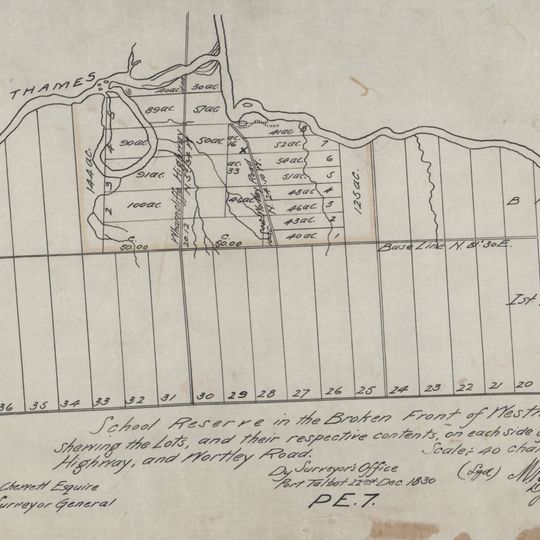 THAMES
40ac. 30ac.
89ac. 57ac.
5
41ac. 8
90ac. 50ac. ac. 16 52ac. 7
4
X
54ac. 6
144ac. 91ac. ac. 33 51ac. 5
3
48ac. 4
125ac.
100ac. 46ac. 46ac. 3
2
43ac. 2
40ac. 1
Wharncliffe Highway
20.12
C
50.00
C
50.00
Base Line N. 81°30'E.
B
Ist
36 35 34 33 32 31 30 29 28 27 26 25 24 23 22 21 20
School Reserve in the Broken Front of Westm
shewing the Lots, and their respective contents, on each side of
Highway, and Wortley Road. Scale; 40 chain
Dy Surveyor's Office (Sgd)
Port Talbot 22nd Dec. 1830
Chewett Esquire
Surveyor General
P.E.7.